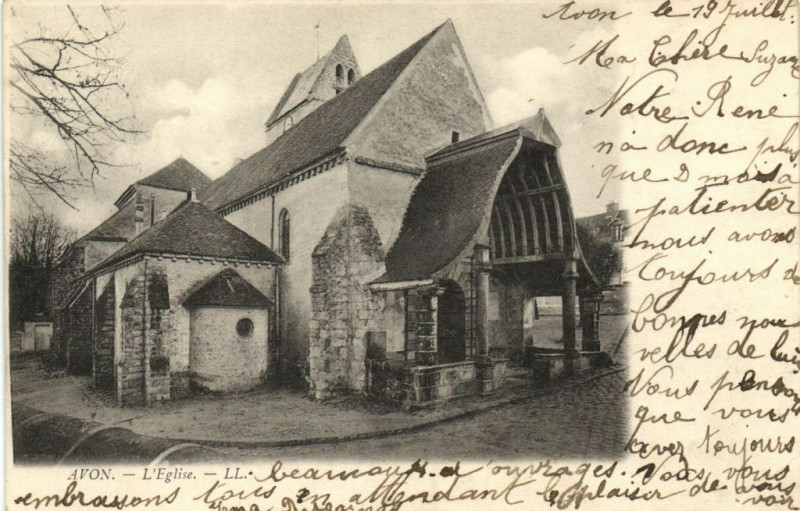 Avon le 19 Juillet
Ma Chère Suzan
Notre René
n'a donc plus
que 2 mois à
patienter
nous avons
toujours de
bonnes nou
velles de lui
Vous pens
que vous
avez toujours
AVON. — L'Eglise. — LL.
beaucoup d'ouvrages. Nous vous
embrassons tous en attendant le plaisir de vous
voir